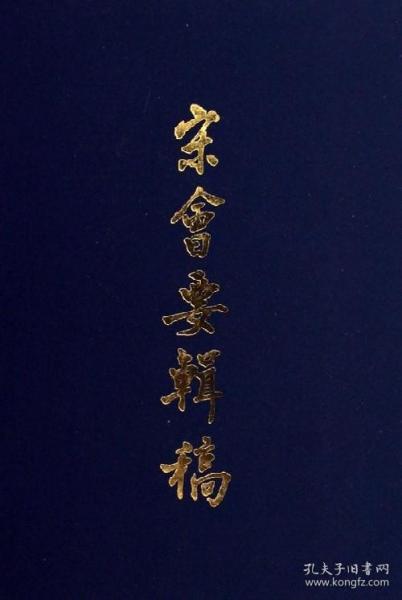 宋會要輯稿
孔夫子旧书网
www.kongfz.com